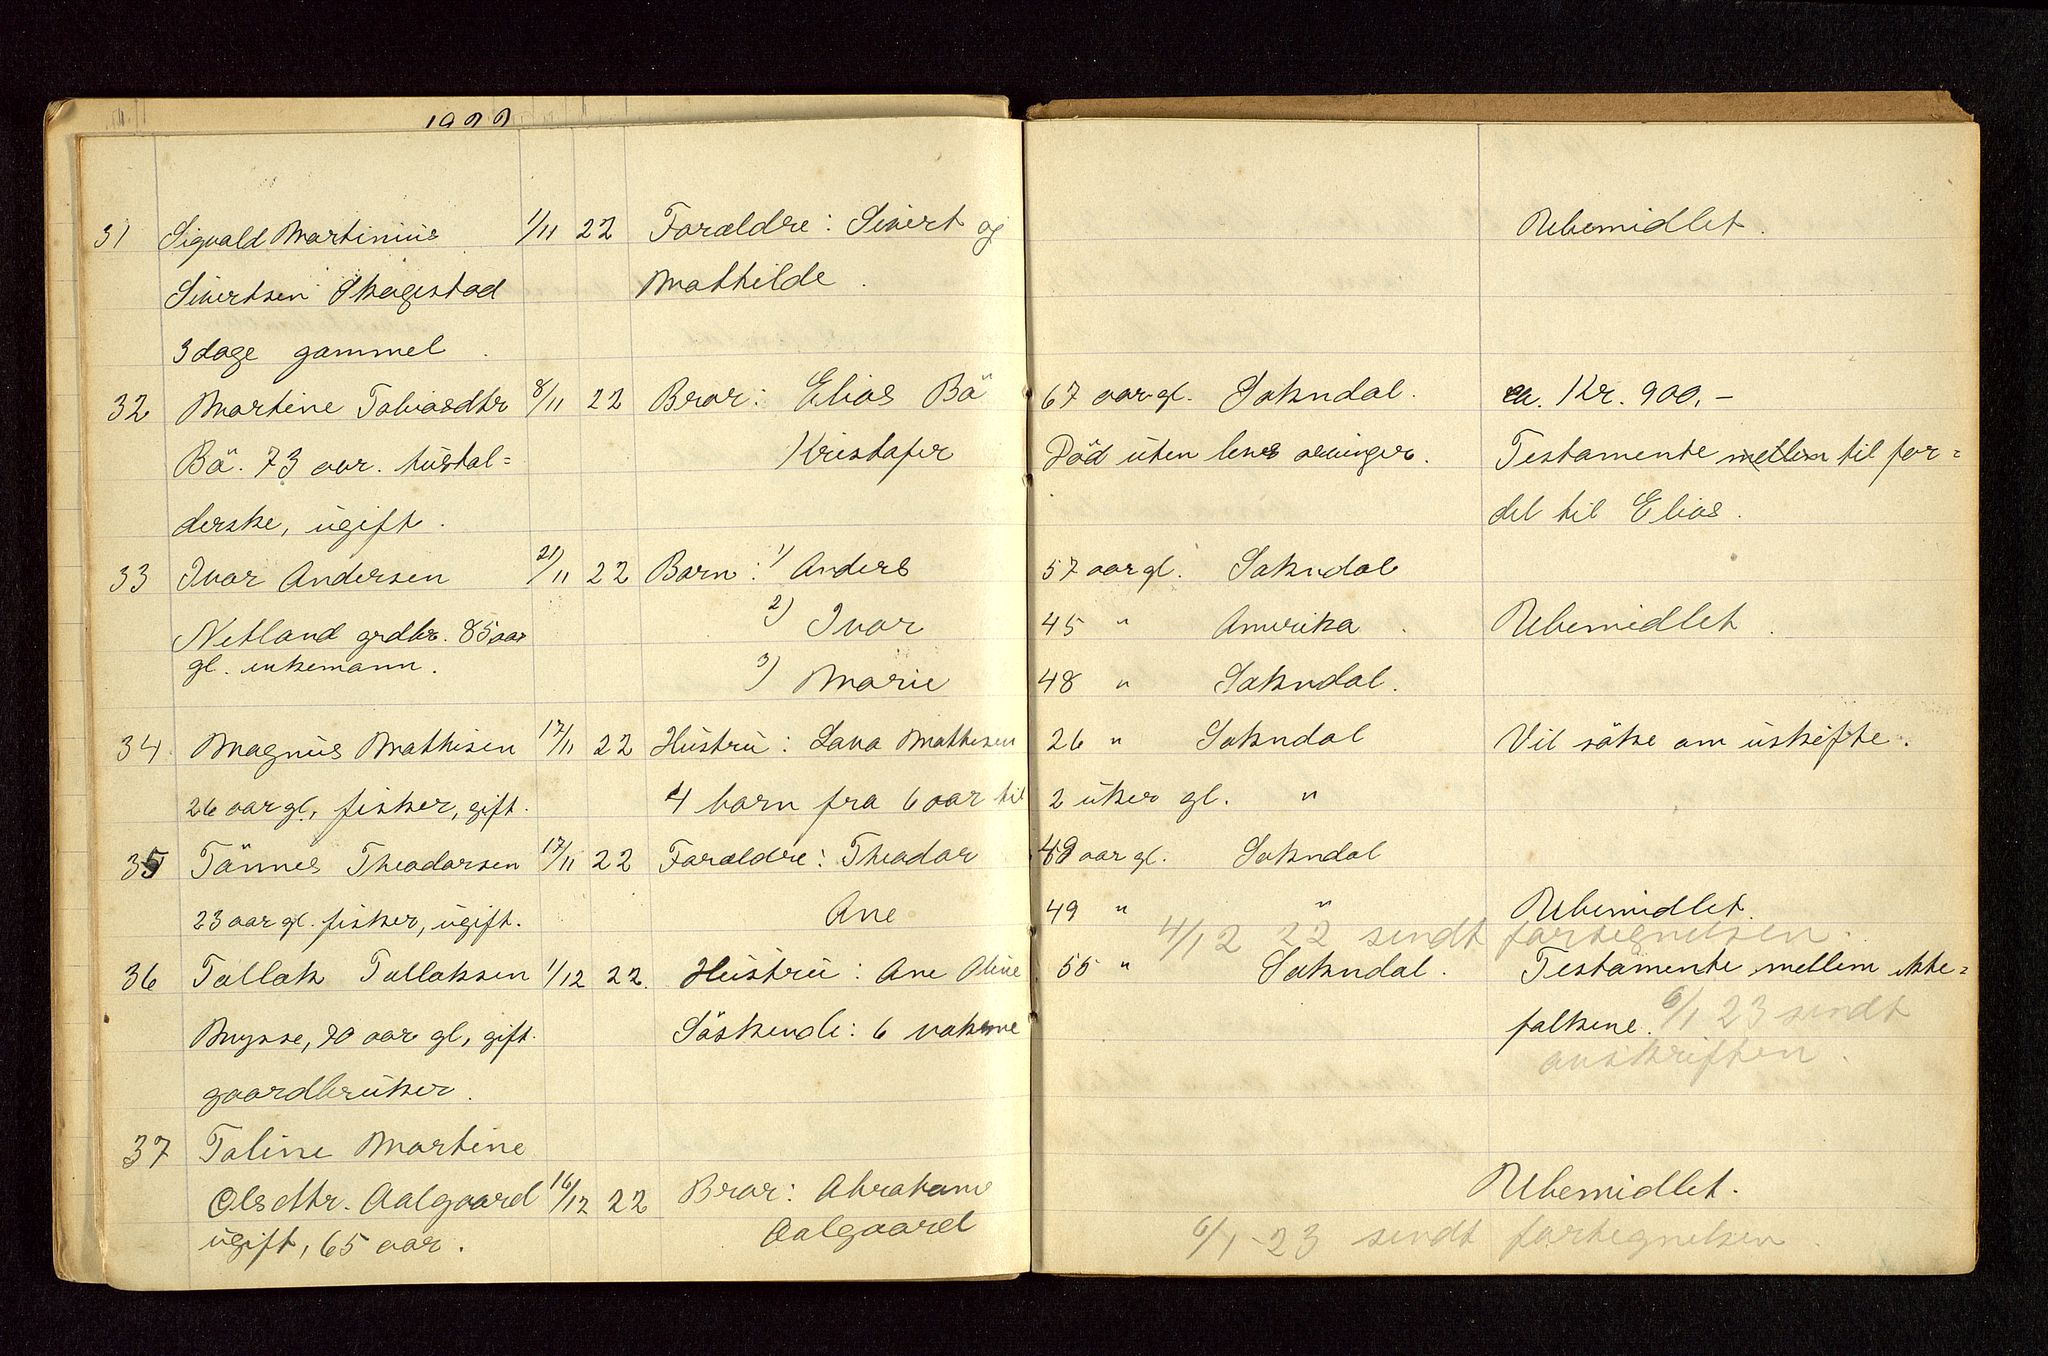 1922
31 Sigvald Martinius 1/11 22 Forældre: Sivert og Ubemidlet.
Sivertsen Skagestad Mathilde.
3 dage gammel.
32 Martine Tobiasdtr 8/11 22 Bror: Elias Bö 67 aar gl. Sokndal. ca. Kr. 900,-
Bö. 73 aar. hushol= Kristofer Död uten livsarvinger. Testamente mellem til for=
derske, ugift. del til Elias.
33 Ivar Andersen 21/11 22 Barn: 1) Anders 57 aar gl. Sokndal
Netland grdbr. 85 aar 2) Ivar 45 " Amerika. Ubemidlet.
gl. enkemann. 3) Marie 48 " Sokndal.
34. Magnus Mathisen 17/11 22 Hustru: Lava Mathisen 26 " Sokndal Vil söke om uskifte.
26 aar gl, fisker, gift. 4 barn fra 6 aar til 2 uker gl. "
35 Tönnes Theodorsen 17/11 22 Forældre: Theodor 49 aar gl. Sokndal
23 aar gl. fisker, ugift. Ane 49 " " Ubemidlet.
4/12 22 sendt fortegnelsen.
36 Tollak Tollaksen 1/12 22. Hustru: Ane Oline 55 " Sokndal. Testamente mellem ekte=
Mysse, 70 aar gl, gift. Söskende: 6 voksne folkene. 6/1 23 sendt
gaardbruker. avskriften.
37 Toline Martine
Olsdtr. Aalgaard 16/12 22 Bror: Abraham Ubemidlet.
ugift, 65 aar. Aalgaard 6/1 - 23 sendt fortegnelsen.